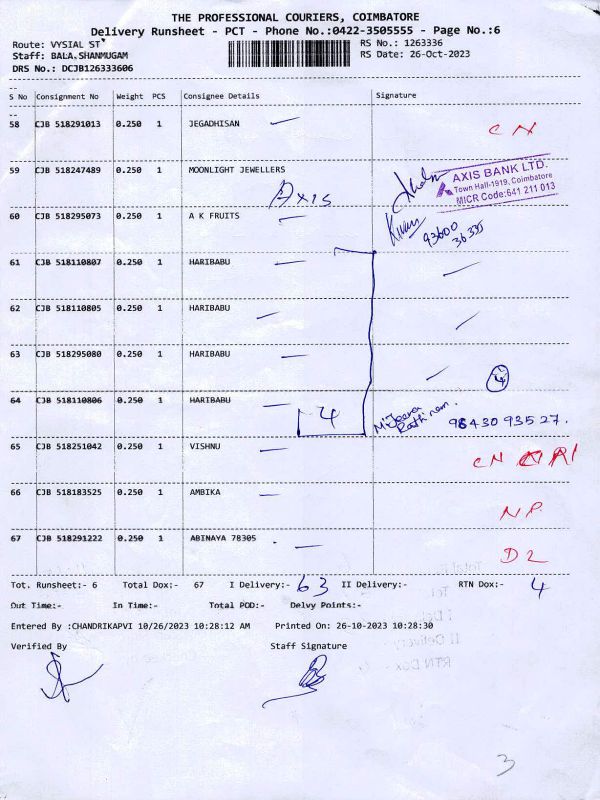 THE PROFESSIONAL COURIERS, COIMBATORE
Delivery Runsheet - PCT - Phone No.:0422-3505555 - Page No.:6
Route: VYSIAL ST
RS No.: 1263336
Staff: BALA.SHANMUGAM
RS Date: 26-Oct-2023
DRS No.: DCJB126333606
S No Consignment No Weight PCS Consignee Details Signature
58 CJB 518291013 0.250 1 JEGADHISAN CN
59 CJB 518247489 0.250 1 MOONLIGHT JEWELLERS
Axis
AXIS BANK LTD.
Town Hall-1919, Coimbatore
MICR Code:641 211 013
60 CJB 518295073 0.250 1 A K FRUITS
93600
36335
61 CJB 518110807 0.250 1 HARIBABU
62 CJB 518110805 0.250 1 HARIBABU
63 CJB 518295080 0.250 1 HARIBABU 4
64 CJB 518110806 0.250 1 HARIBABU 4
98430 93527.
65 CJB 518251042 0.250 1 VISHNU CN
66 CJB 518183525 0.250 1 AMBIKA NP
67 CJB 518291222 0.250 1 ABINAYA 78305 D2
Tot. Runsheet:- 6 Total Dox:- 67 I Delivery:- 63 II Delivery:- RTN Dox:- 4
Out Time:- In Time:- Total POD:- Delvy Points:-
Entered By :CHANDRIKAPVI 10/26/2023 10:28:12 AM Printed On: 26-10-2023 10:28:30
Verified By Staff Signature
3